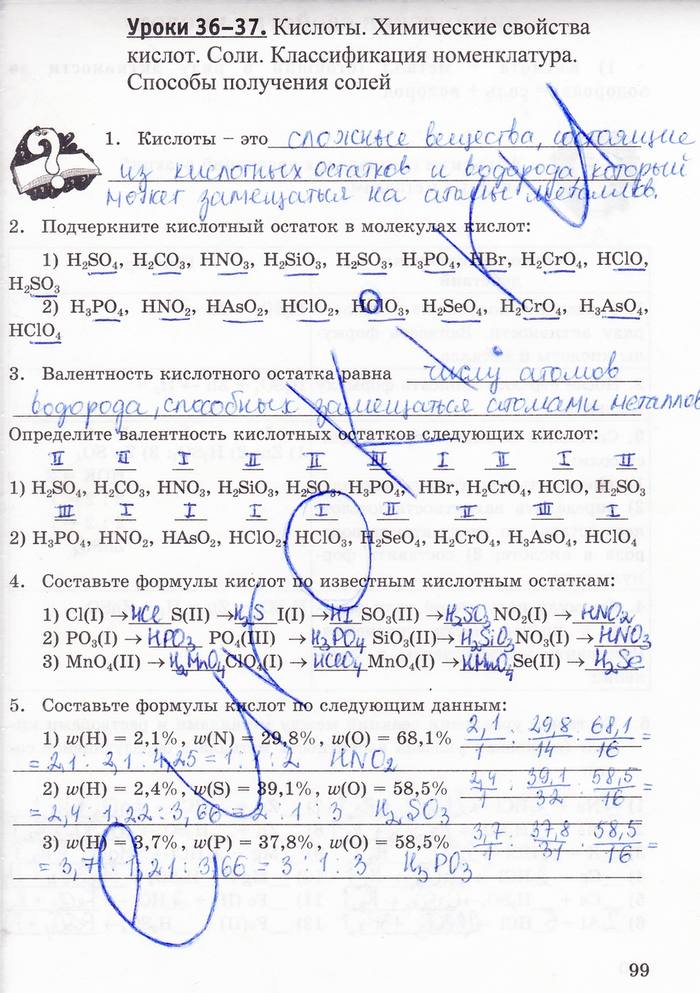 Уроки 36–37. Кислоты. Химические свойства
кислот. Соли. Классификация номенклатура.
Способы получения солей
1. Кислоты – это сложные вещества, состоящие
из кислотных остатков и водорода который
может замещаться на атомы металлов.
2. Подчеркните кислотный остаток в молекулах кислот:
1) H₂SO₄, H₂CO₃, HNO₃, H₂SiO₃, H₂SO₃, H₃PO₄, HBr, H₂CrO₄, HClO,
H₂SO₃
2) H₃PO₄, HNO₂, HAsO₂, HClO₂, HClO₃, H₂SeO₄, H₂CrO₄, H₃AsO₄,
HClO₄
3. Валентность кислотного остатка равна числу атомов
водорода, способных замещаться атомами металлов
Определите валентность кислотных остатков следующих кислот:
II II I II II III I II I II
1) H₂SO₄, H₂CO₃, HNO₃, H₂SiO₃, H₂SO₃, H₃PO₄, HBr, H₂CrO₄, HClO, H₂SO₃
III I I I I II II III I
2) H₃PO₄, HNO₂, HAsO₂, HClO₂, HClO₃, H₂SeO₄, H₂CrO₄, H₃AsO₄, HClO₄
4. Составьте формулы кислот по известным кислотным остаткам:
1) Cl(I) → HCl S(II) → H₂S I(I) → HI SO₃(II) → H₂SO₃ NO₂(I) → HNO₂
2) PO₃(I) → HPO₃ PO₄(III) → H₃PO₄ SiO₃(II) → H₂SiO₃ NO₃(I) → HNO₃
3) MnO₄(II) → H₂MnO₄ ClO₄(I) → HClO₄ MnO₄(I) → HMnO₄ Se(II) → H₂Se
5. Составьте формулы кислот по следующим данным:
1) w(H) = 2,1%, w(N) = 29,8%, w(O) = 68,1% 2,1/1 : 29,8/14 : 68,1/16 =
= 2,1 : 2,1 : 4,25 = 1 : 1 : 2 HNO₂
2) w(H) = 2,4%, w(S) = 39,1%, w(O) = 58,5% 2,4/1 : 39,1/32 : 58,5/16 =
= 2,4 : 1,22 : 3,66 = 2 : 1 : 3 H₂SO₃
3) w(H) = 3,7%, w(P) = 37,8%, w(O) = 58,5% 3,7/1 : 37,8/31 : 58,5/16 =
= 3,7 : 1,21 : 3,66 = 3 : 1 : 3 H₃PO₃
99